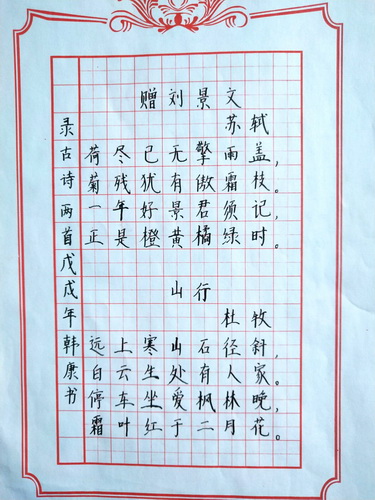 赠刘景文
苏轼
荷尽已无擎雨盖，
菊残犹有傲霜枝。
一年好景君须记，
正是橙黄橘绿时。
山行
杜牧
远上寒山石径斜，
白云生处有人家。
停车坐爱枫林晚，
霜叶红于二月花。
录古诗两首戊戌年韩康书